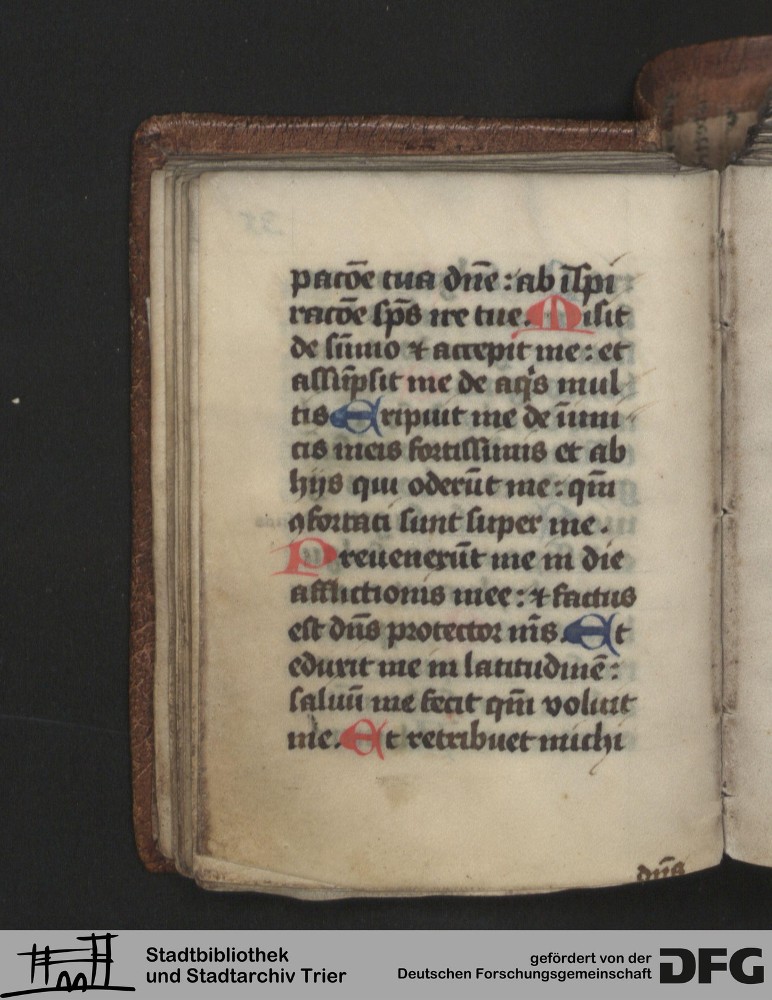 pacōe tua dn̄e : ab ītspi
racōe sp̄s ire tue. Misit
de sūmo ⁊ accepit me : et
assūpsit me de aq̄s mul
tis Eripuit me de īimi
cis meis fortissimis et ab
hijs qui oderūt me : qm̄
ꝯfortati sunt super me.
Preuenerūt me in die
afflictionis mee : ⁊ factus
est dn̄s protector m̄s. Et
eduxit me in latitudinē :
saluū me fecit qm̄ voluit
me. Et retribuet michi
dn̄s
Stadtbibliothek
und Stadtarchiv Trier
gefördert von der
Deutschen Forschungsgemeinschaft
DFG